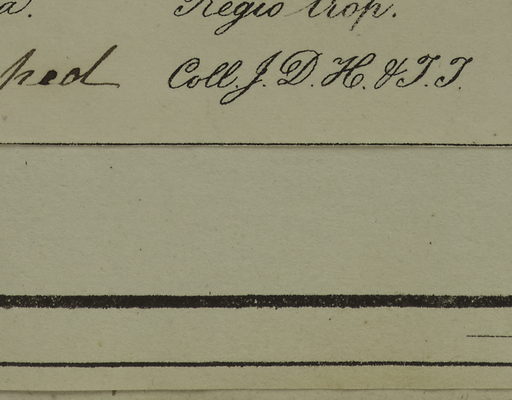 a. Regio trop.
Coll. J. D. H. & T. T.